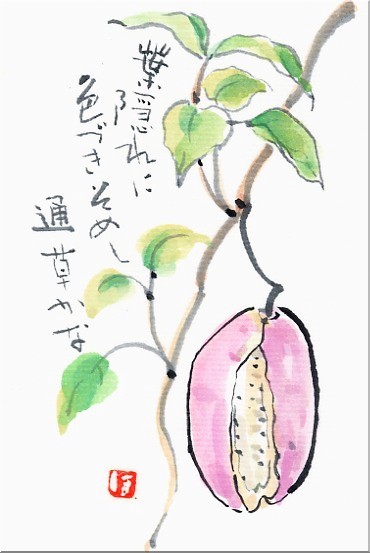 葉隠れに
色づきそめし
通草かな